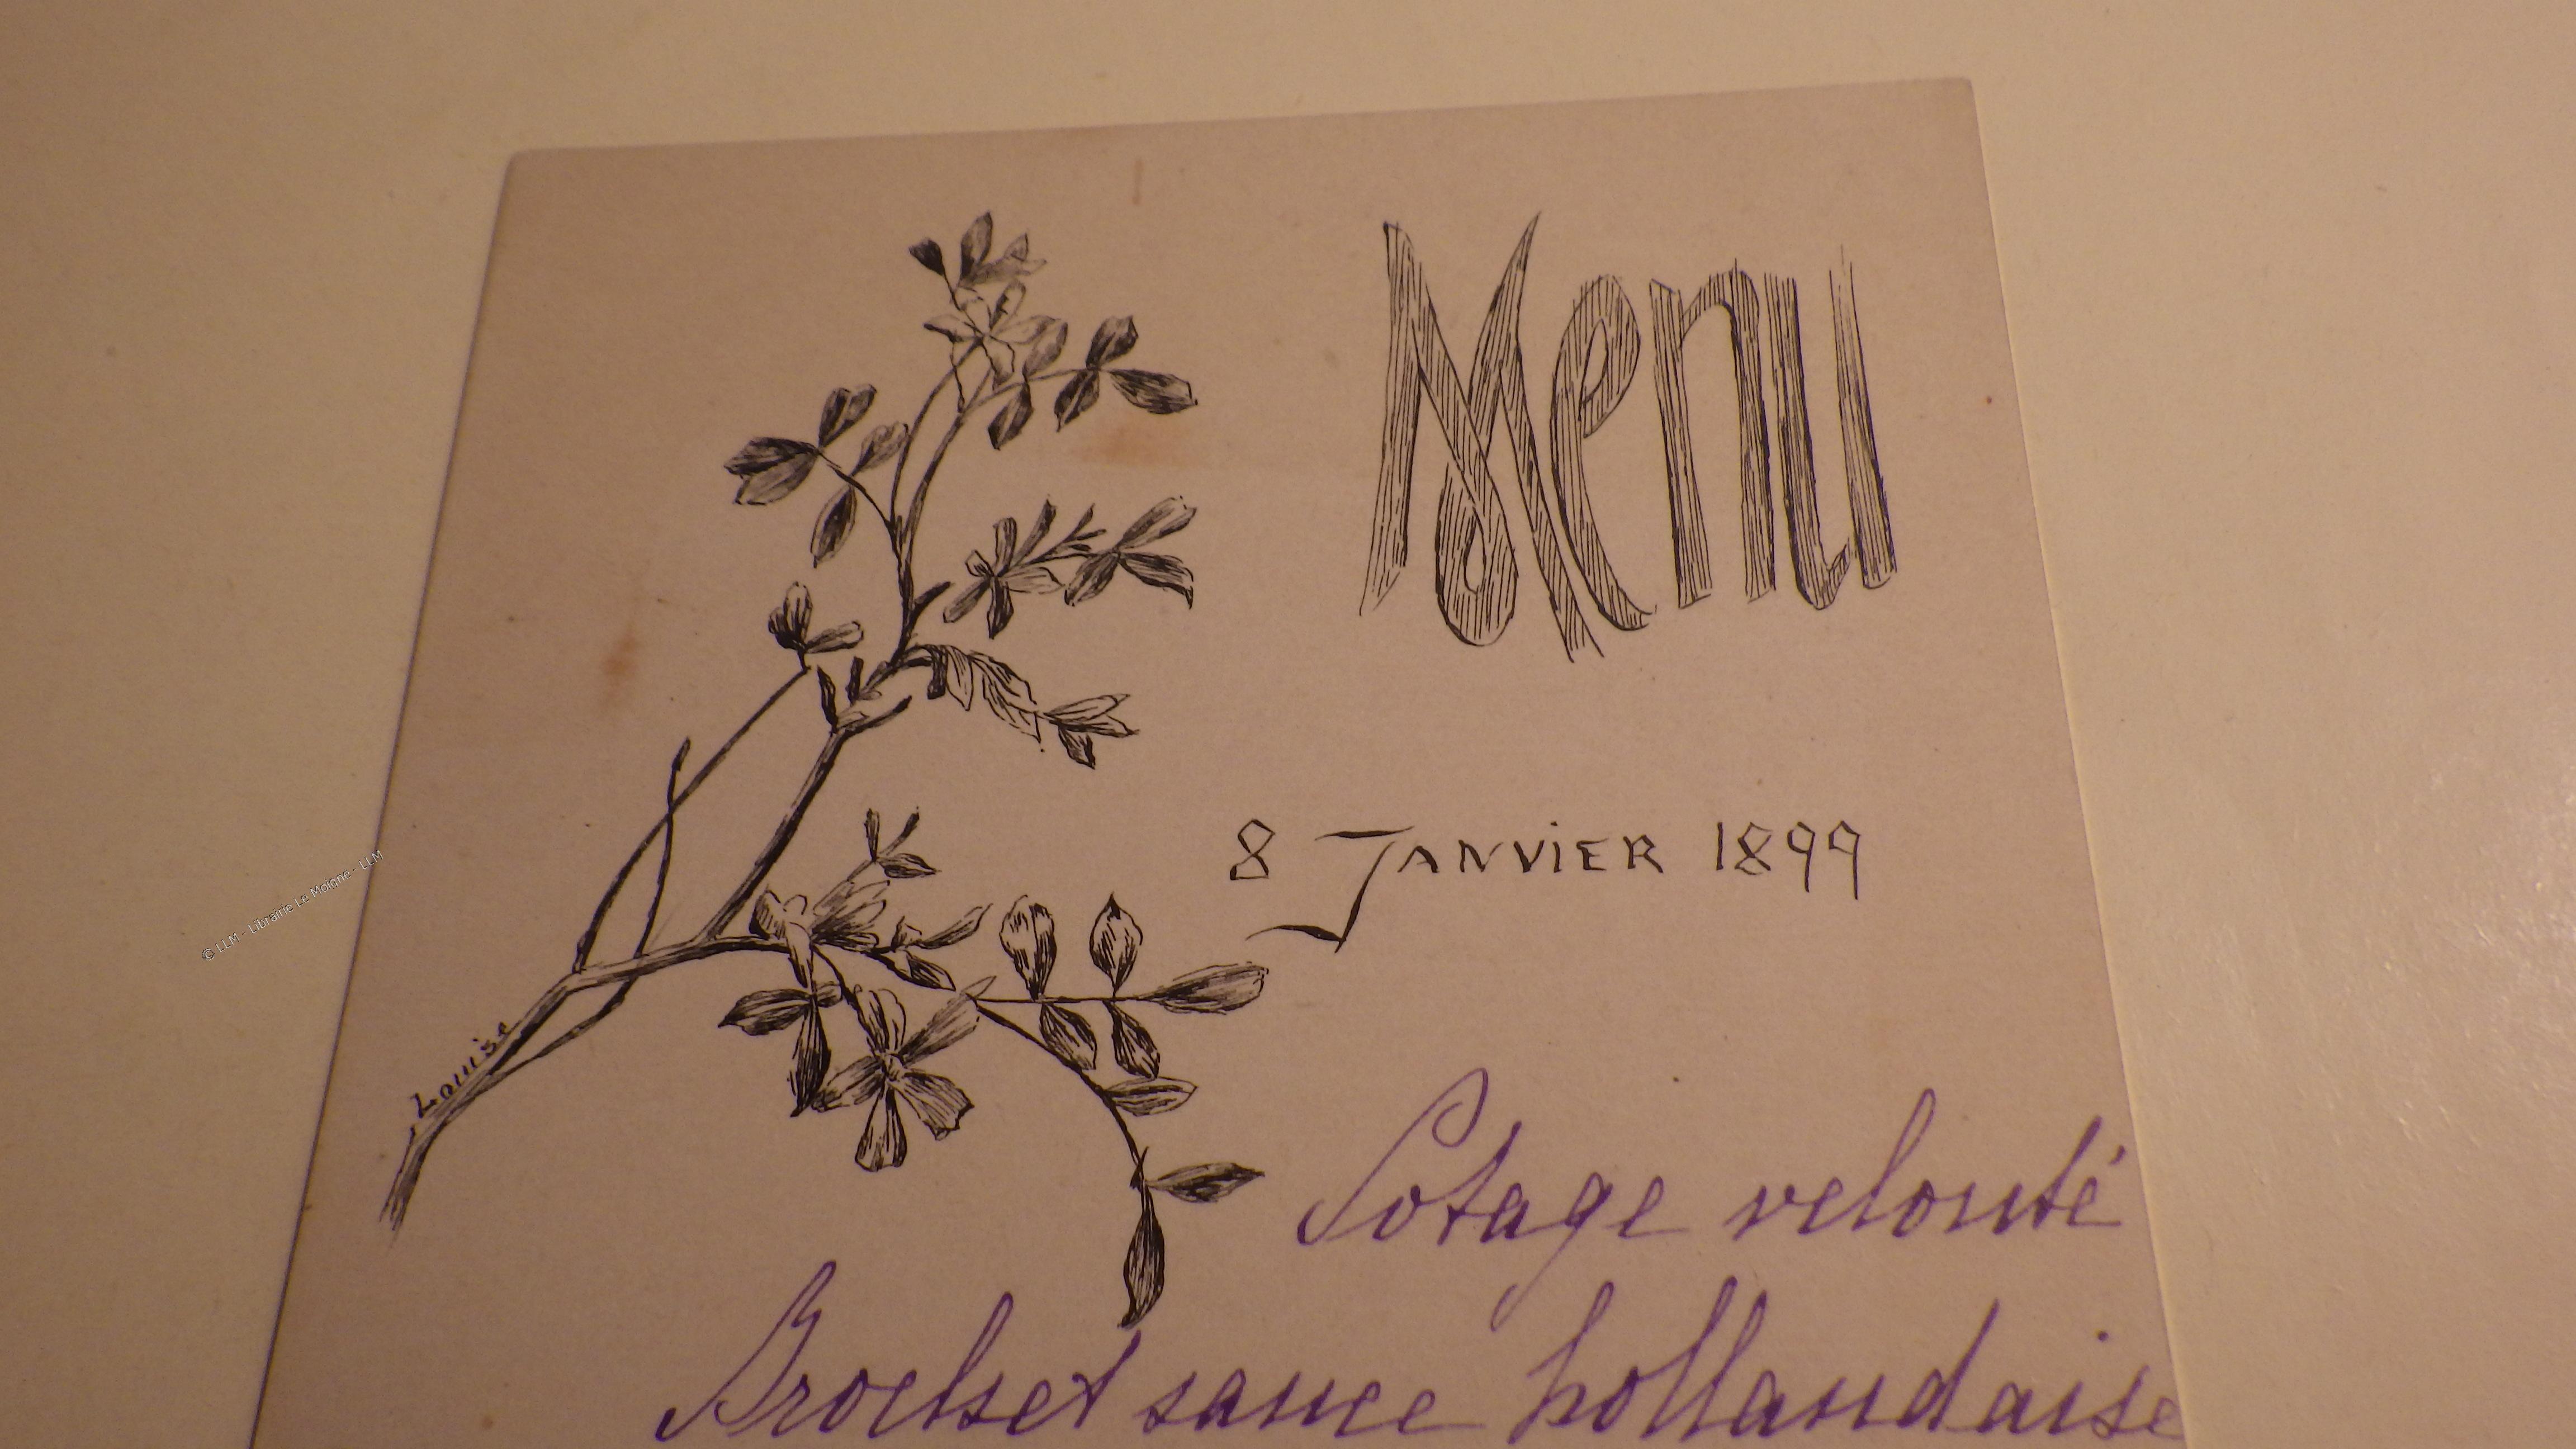 Menu
8 JANVIER 1899
Louise
Potage velouté
Brochet sauce hollandaise
© LLM - Librairie Le Moigne - LLM